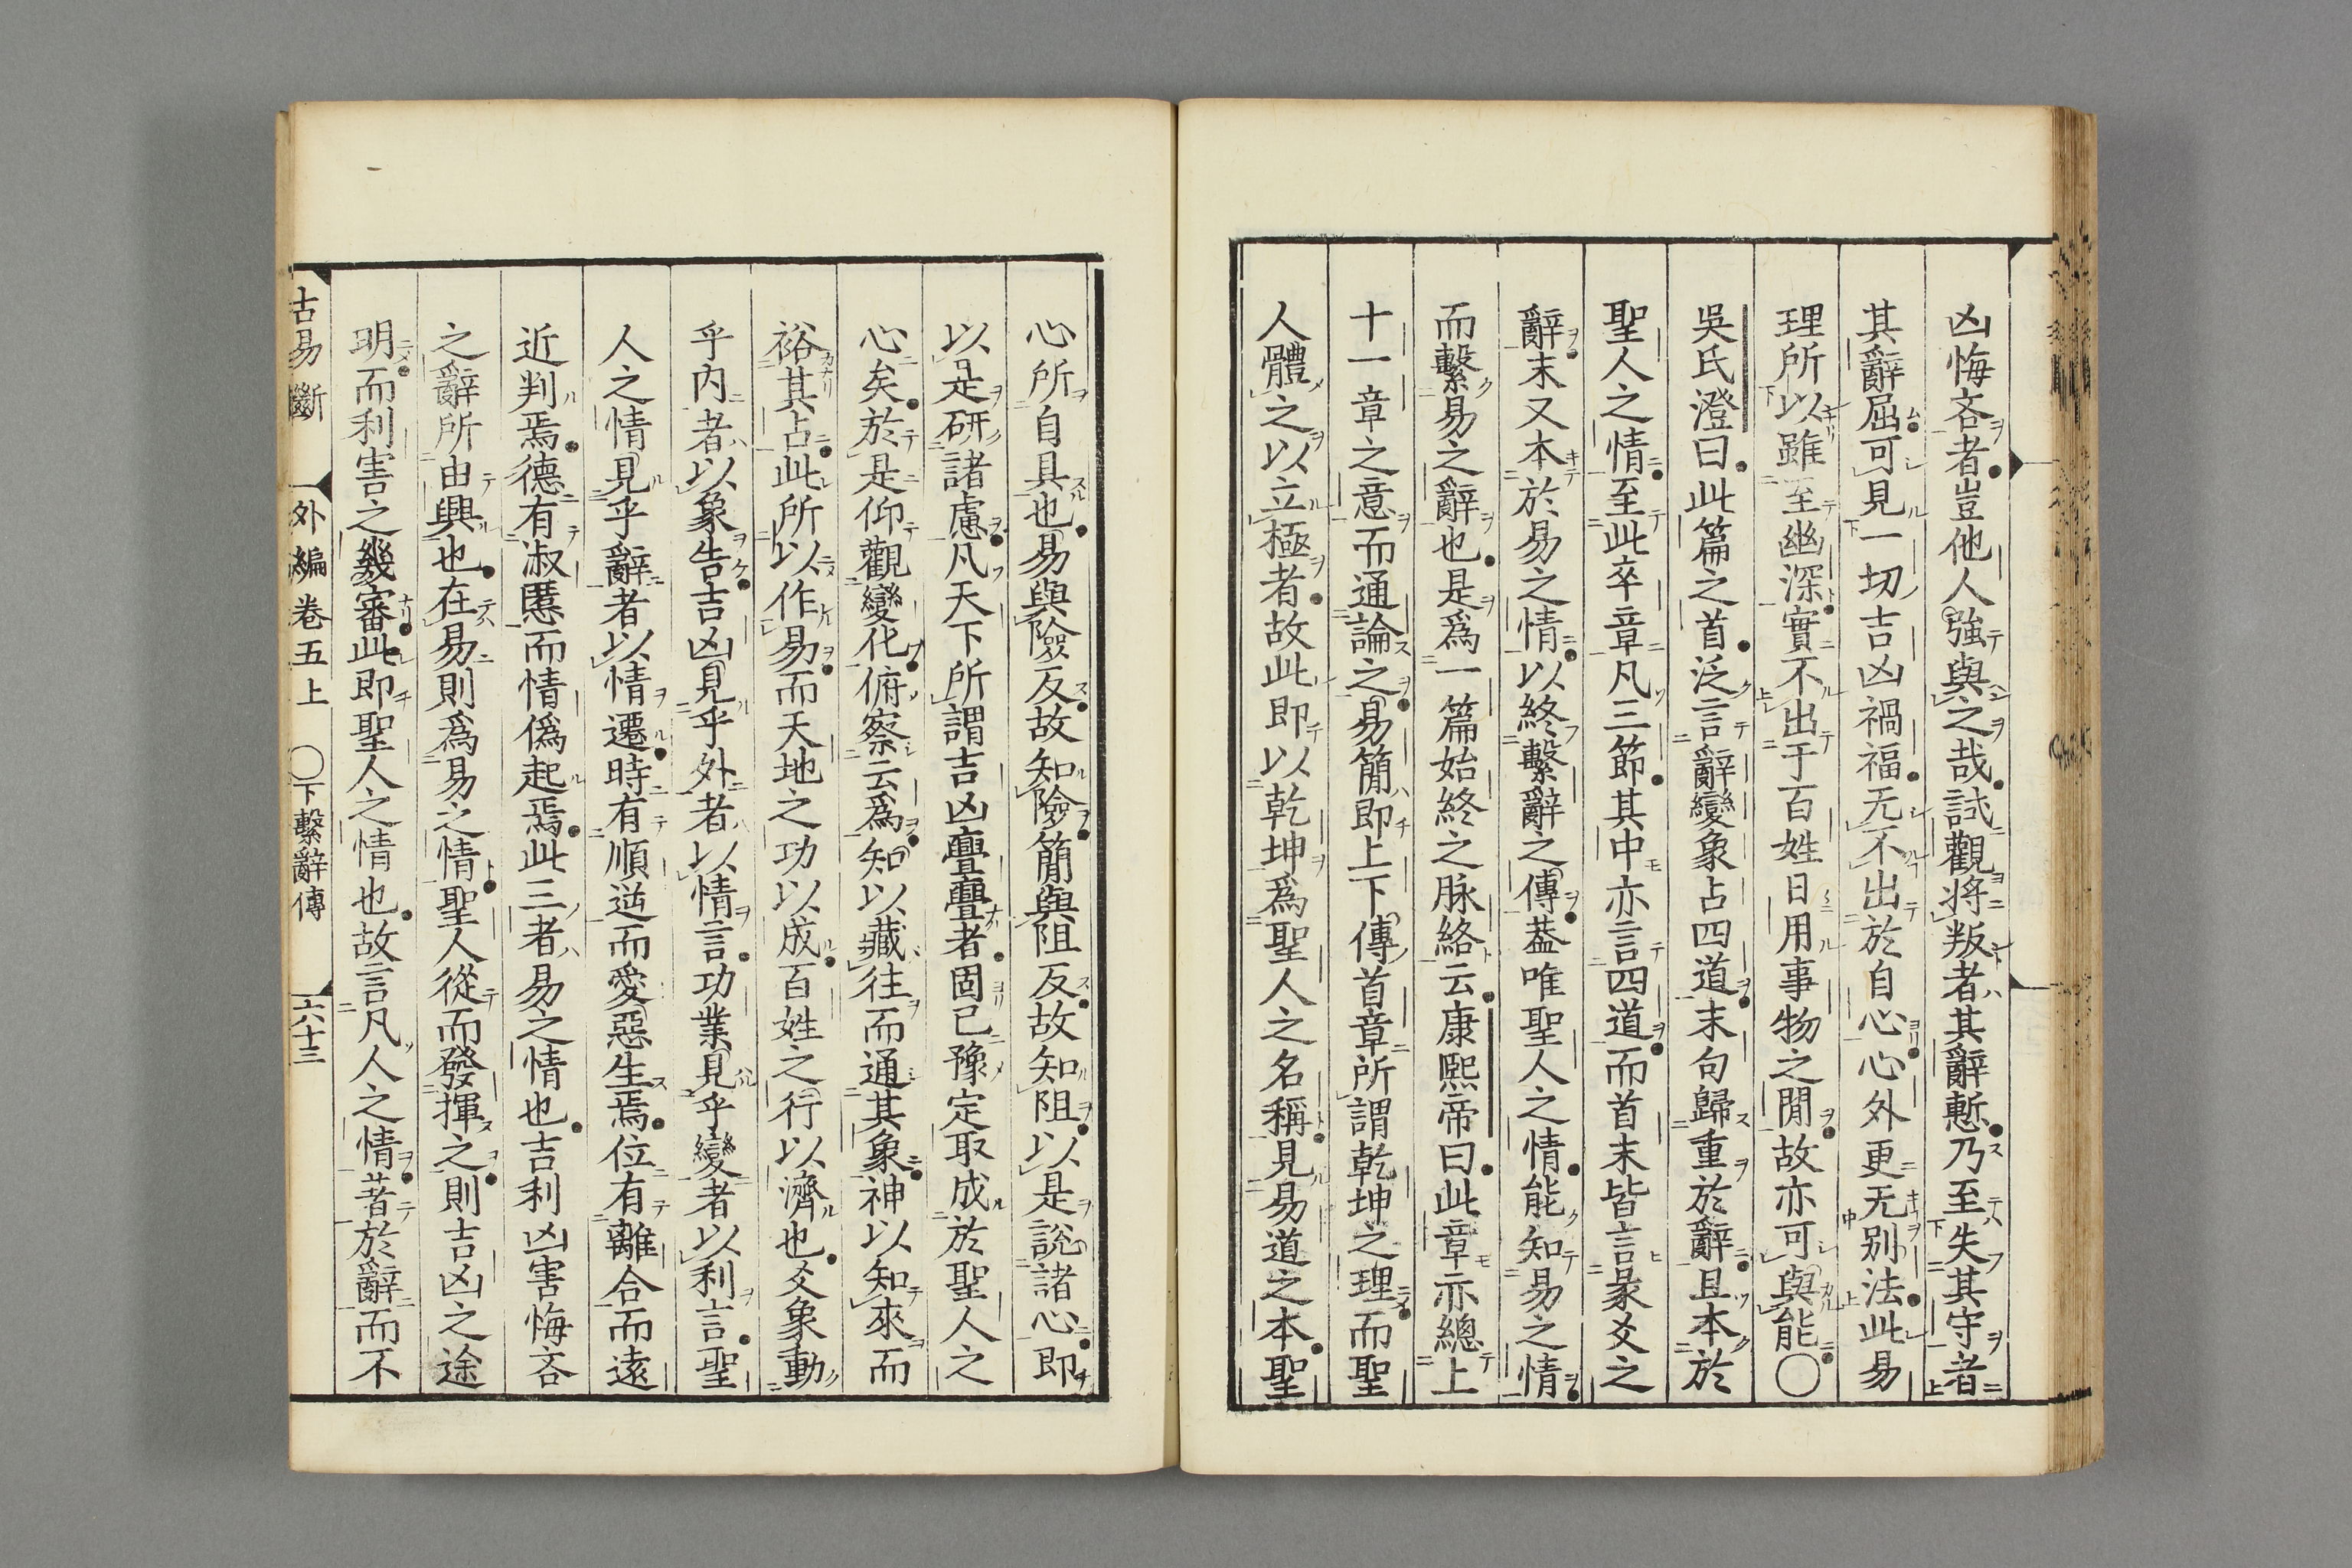 凶悔吝者豈他人強與之哉試觀將叛者其辭慙乃至失其守者
其辭屈可見一切吉凶禍福无不出於自心心外更无別法此易
理所以雖至幽深實不出于百姓日用事物之閒故亦可與能〇
吳氏澄曰此篇之首泛言辭變象占四道末句歸重於辭且本於
聖人之情至此卒章凡三節其中亦言四道而首末皆言彖爻之
辭末又本於易之情以終繫辭之傳葢唯聖人之情能知易之情
而繫易之辭也是爲一篇始終之脉絡云康熙帝曰此章亦總上
十一章之意而通論之易簡即上下傳首章所謂乾坤之理而聖
人體之以立極者故此即以乾坤爲聖人之名稱見易道之本聖
心所自具也易與險反故知險簡與阻反故知阻以是説諸心即
以是研諸慮凡天下所謂吉凶亹亹者固已豫定取成於聖人之
心矣於是仰觀變化俯察云爲知以藏往而通其象神以知來而
裕其占此所以作易而天地之功以成百姓之行以濟也爻象動
乎内者以象告吉凶見乎外者以情言功業見乎變者以利言聖
人之情見乎辭者以情遷時有順逆而愛惡生焉位有離合而遠
近判焉德有淑慝而情僞起焉此三者易之情也吉利凶害悔吝
之辭所由興也在易則爲易之情聖人從而發揮之則吉凶之途
明而利害之幾審此即聖人之情也故言凡人之情著於辭而不
古易斷 外編卷五上 〇下繫辭傳 六十三